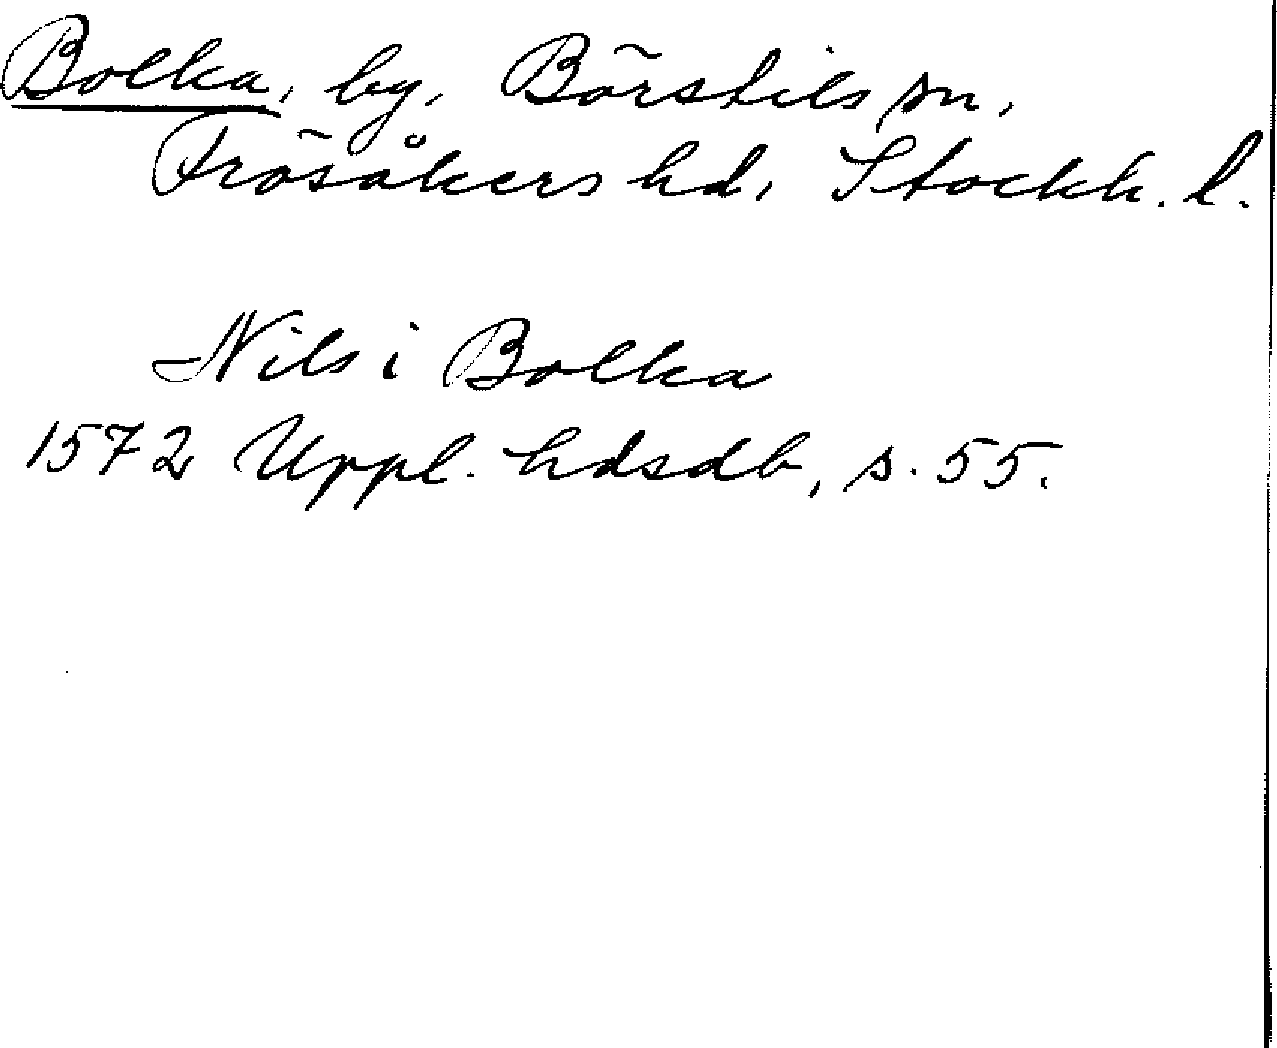 Bolka, by, Börstils sn,
Frösåkers hd, Stockh. l.
Nils i Bolka
1572 Uppl. hdsdb, s. 55.